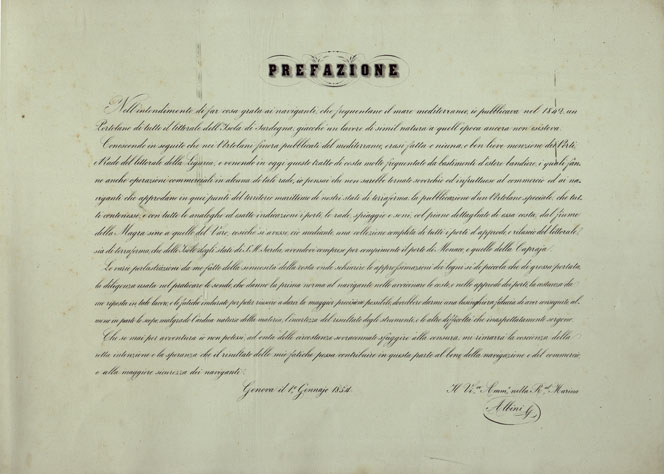 PREFAZIONE
Nell'intendimento di far cosa grata ai naviganti, che frequentano il mare mediterraneo, io pubblicava nel 1842, un
Portolano di tutto il littorale dell'Isola di Sardegna, giacchè un lavoro di simil natura a quell'epoca ancora non esisteva.
Conoscendo in seguito che nei Portolani finora pubblicati del mediterraneo, erasi fatta o niuna, o ben lieve menzione dei Porti,
e Rade del littorale della Liguria, e venendo in oggi questo tratto di costa molto frequentato da bastimenti d'estere bandiere, i quali fan
no anche operazioni commerciali in alcuna di tali rade, io pensai che non sarebbe tornata soverchia ed infruttuosa al commercio ed ai na
viganti che approdano in qui punti del territorio marittimo di nostri stati di terraferma, la pubblicazione d'un Portolano speciale, che tut
to contenesse, e con tutte le analoghe ed esatte indicazioni i porti, le rade, spiaggie e seni, col piano dettagliato di essa costa, dal fiume
della Magra sino a quello del Varo, cosichè si avesse, ciò mediante una collezione completa di tutti i porti d'approdo, e rilascio del littorale,
sia di terraferma, che delle Isole degli stati di S. M. Sarda, avendovi compreso per compimento il porto di Monaco, e quello della Capraja.
Le varie perlustrazioni da me fatte della summenta della costa onde schiarire le approssimazioni dei legni sì di piccola che di grossa portata,
la diligenza usata nel praticare le sonde, che danno la prima norma al navigante nello avvicinare le coste, e nello approdo dei porti, la esattezza da
me riposta in tale lavoro, e le fatiche indurate per poter riescire a dare la maggior precisione possibile, dovrebbero darmi una lusinghiera fiducia di aver conseguito al
meno in parte lo scopo, malgrado l'ardua natura della materia, l'incertezza del risultato degli strumenti, e le altre difficoltà che inaspettatamente sorgono.
Che se mai per avventura io non potessi, ad onta delle circostanze sovraccennate sfuggire alla censura, mi rimarrà la coscienza della
retta intenzione e la speranza che il risultato delle mie fatiche possa contribuire in questa parte al bene della navigazione e del commercio
e alla maggiore sicurezza dei naviganti.
Genova il 1º Gennajo 1854.
Il Vi.ce Amm.e nella R.l Marina
Albini G.